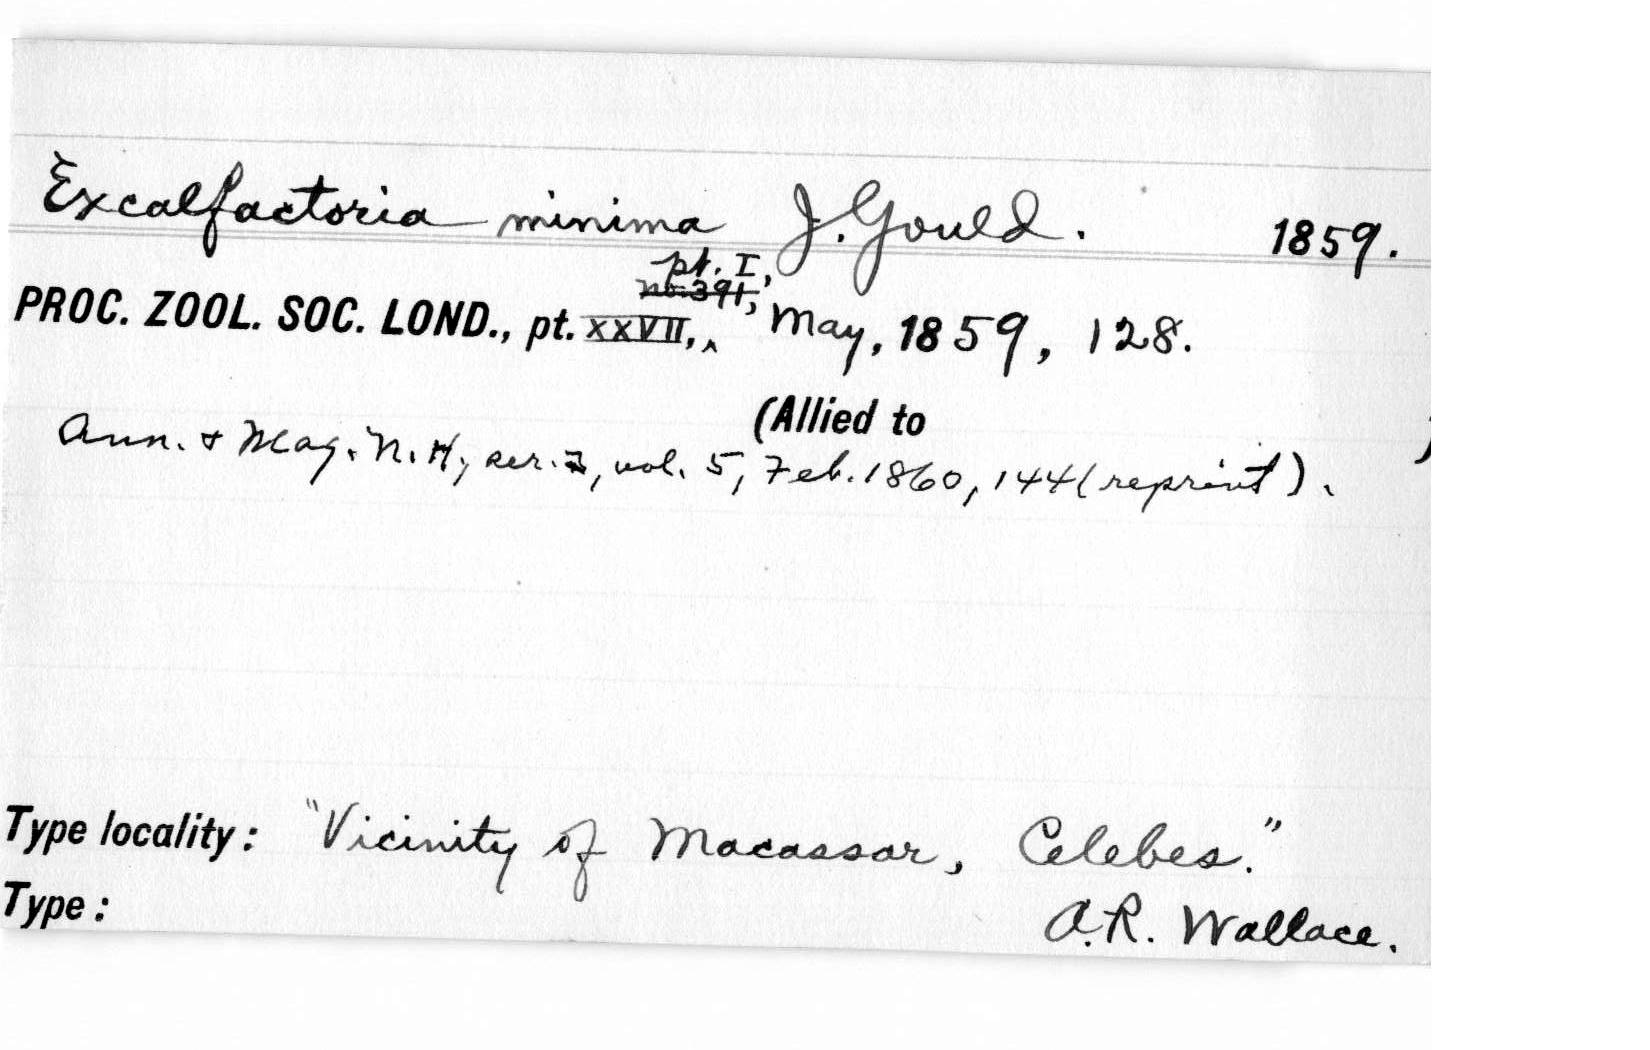 Excalfactoria minima J. Gould. 1859.
pt. I,
no. 391,
PROC. ZOOL. SOC. LOND., pt. XXVII, ^ May, 1859, 128.
(Allied to )
Ann. & Mag. N. H., ser. 3, vol. 5, Feb. 1860, 144 (reprint).
Type locality: "Vicinity of Macassar, Celebes."
Type: A. R. Wallace.